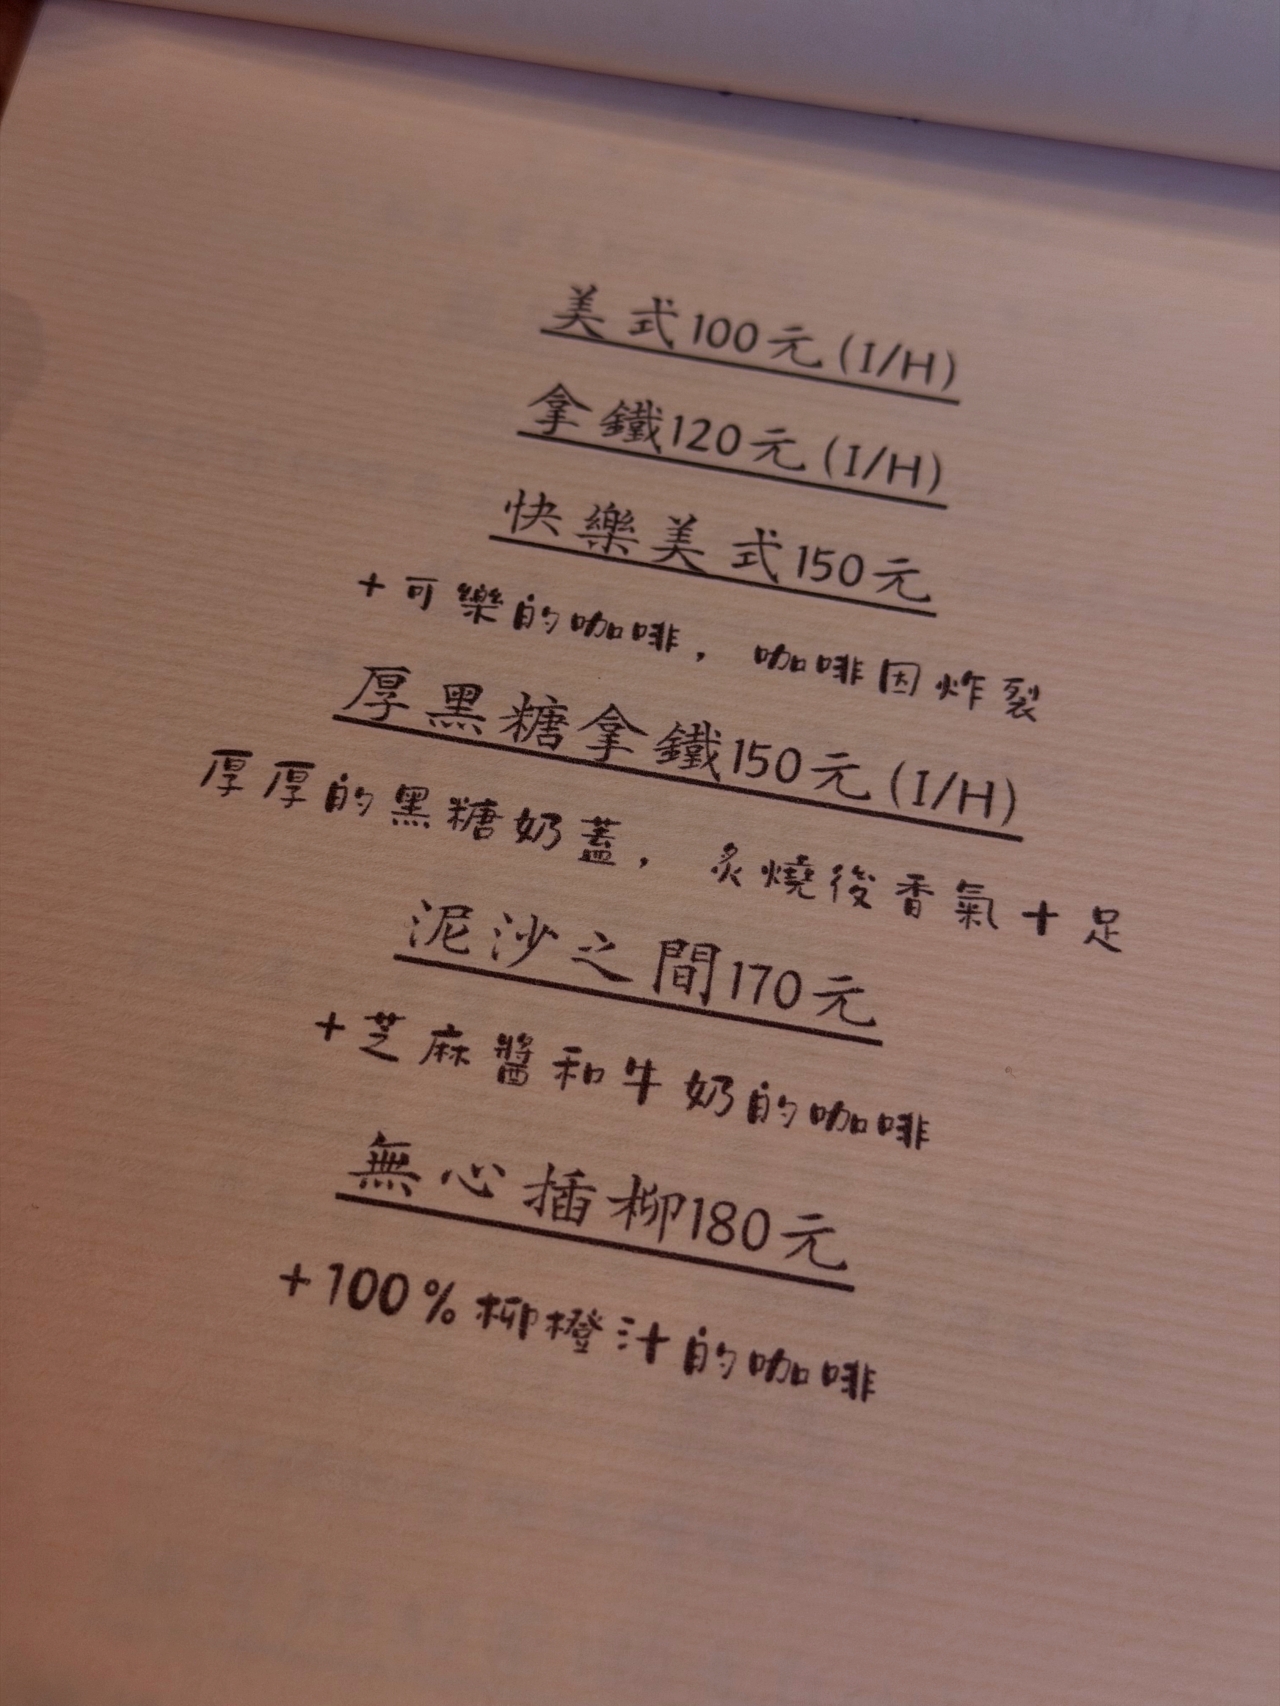 美式100元(I/H)
拿鐵120元(I/H)
快樂美式150元
+可樂的咖啡，咖啡因炸裂
厚黑糖拿鐵150元(I/H)
厚厚的黑糖奶蓋，炙燒後香氣十足
泥沙之間170元
+芝麻醬和牛奶的咖啡
無心插柳180元
+100%柳橙汁的咖啡